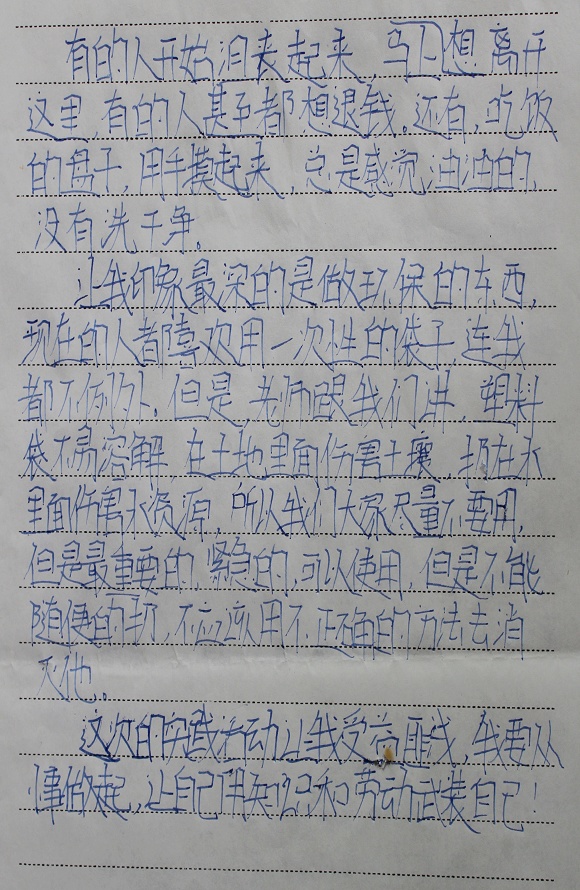 有的人开始沮丧起来,马上想离开
这里,有的人甚至都想退钱。还有,吃饭
的盘子,用手摸起来,总是感觉油油的,
没有洗干净。
让我印象最深的是做环保的东西,
现在的人都喜欢用一次性的袋子,连我
都不例外。但是,老师跟我们讲,塑料
袋不易溶解,在土地里面伤害土壤,扔在水
里面伤害水资源,所以我们大家尽量不要用,
但是最重要的,紧急的,可以使用,但是不能
随便的扔,不应该用不正确的方法去消
灭他。
这次的实践活动让我受益匪浅,我要从
事做起,让自己用知识和劳动武装自己!